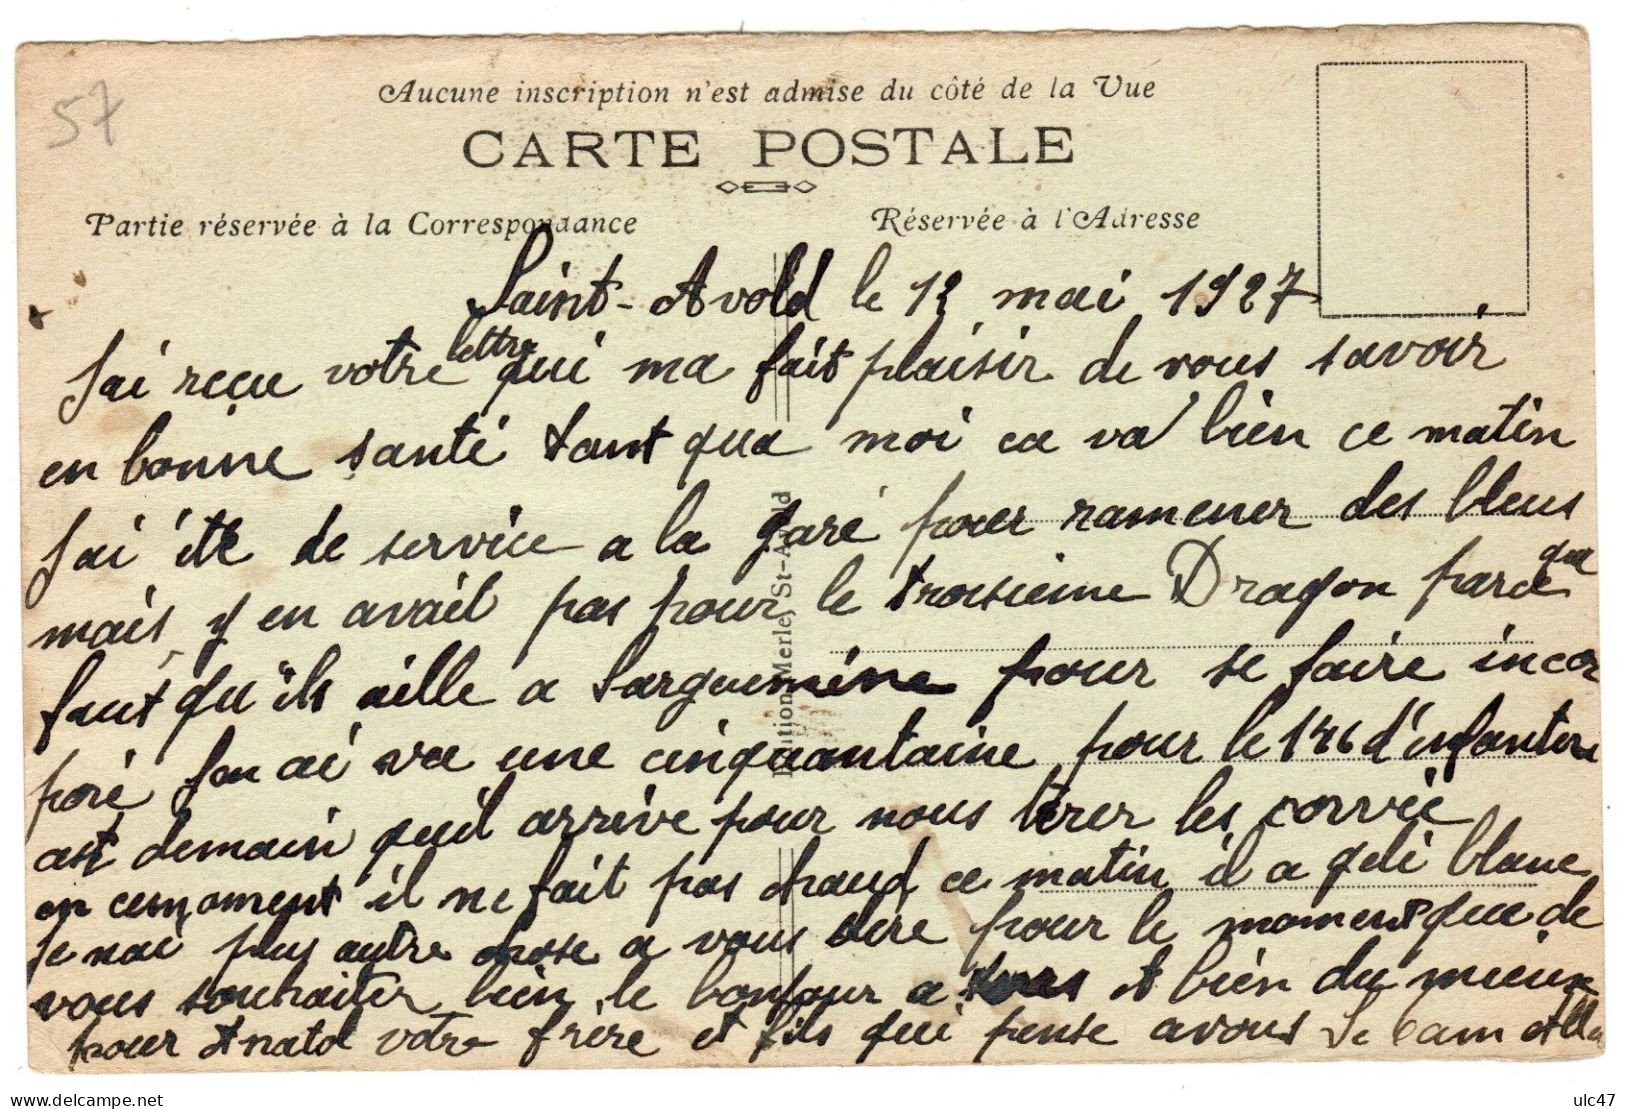 57
Aucune inscription n'est admise du côté de la Vue
CARTE POSTALE
Partie réservée à la Correspondance
Réservée à l'Adresse
Saint-Avold le 12 mai 1927
J'ai reçu votre lettre qui ma fait plaisir de vous savoir
en bonne santé tant qua moi ca va bien ce matin
J'ai été de service a la gare pour ramener des bleus
mais y en avail pas pour le troisieme Dragon parce qua
faut qu'ils aille a Sarguemine pour se faire incor
poré Jen ai vu une cinquantaine pour le 146 d'infanterie
ast demain quil arrive pour nous tirer les corvée
en cemoment il ne fait pas chaud ce matin il a gelé blanc
Je nai plus autre chose a vous dire pour le moment que de
vous souhaiter bien le bonjour a tous et bien du mieux
pour Anatol votre frère et fils qui pense avous
Edition Merle, St-Avold
ulc47